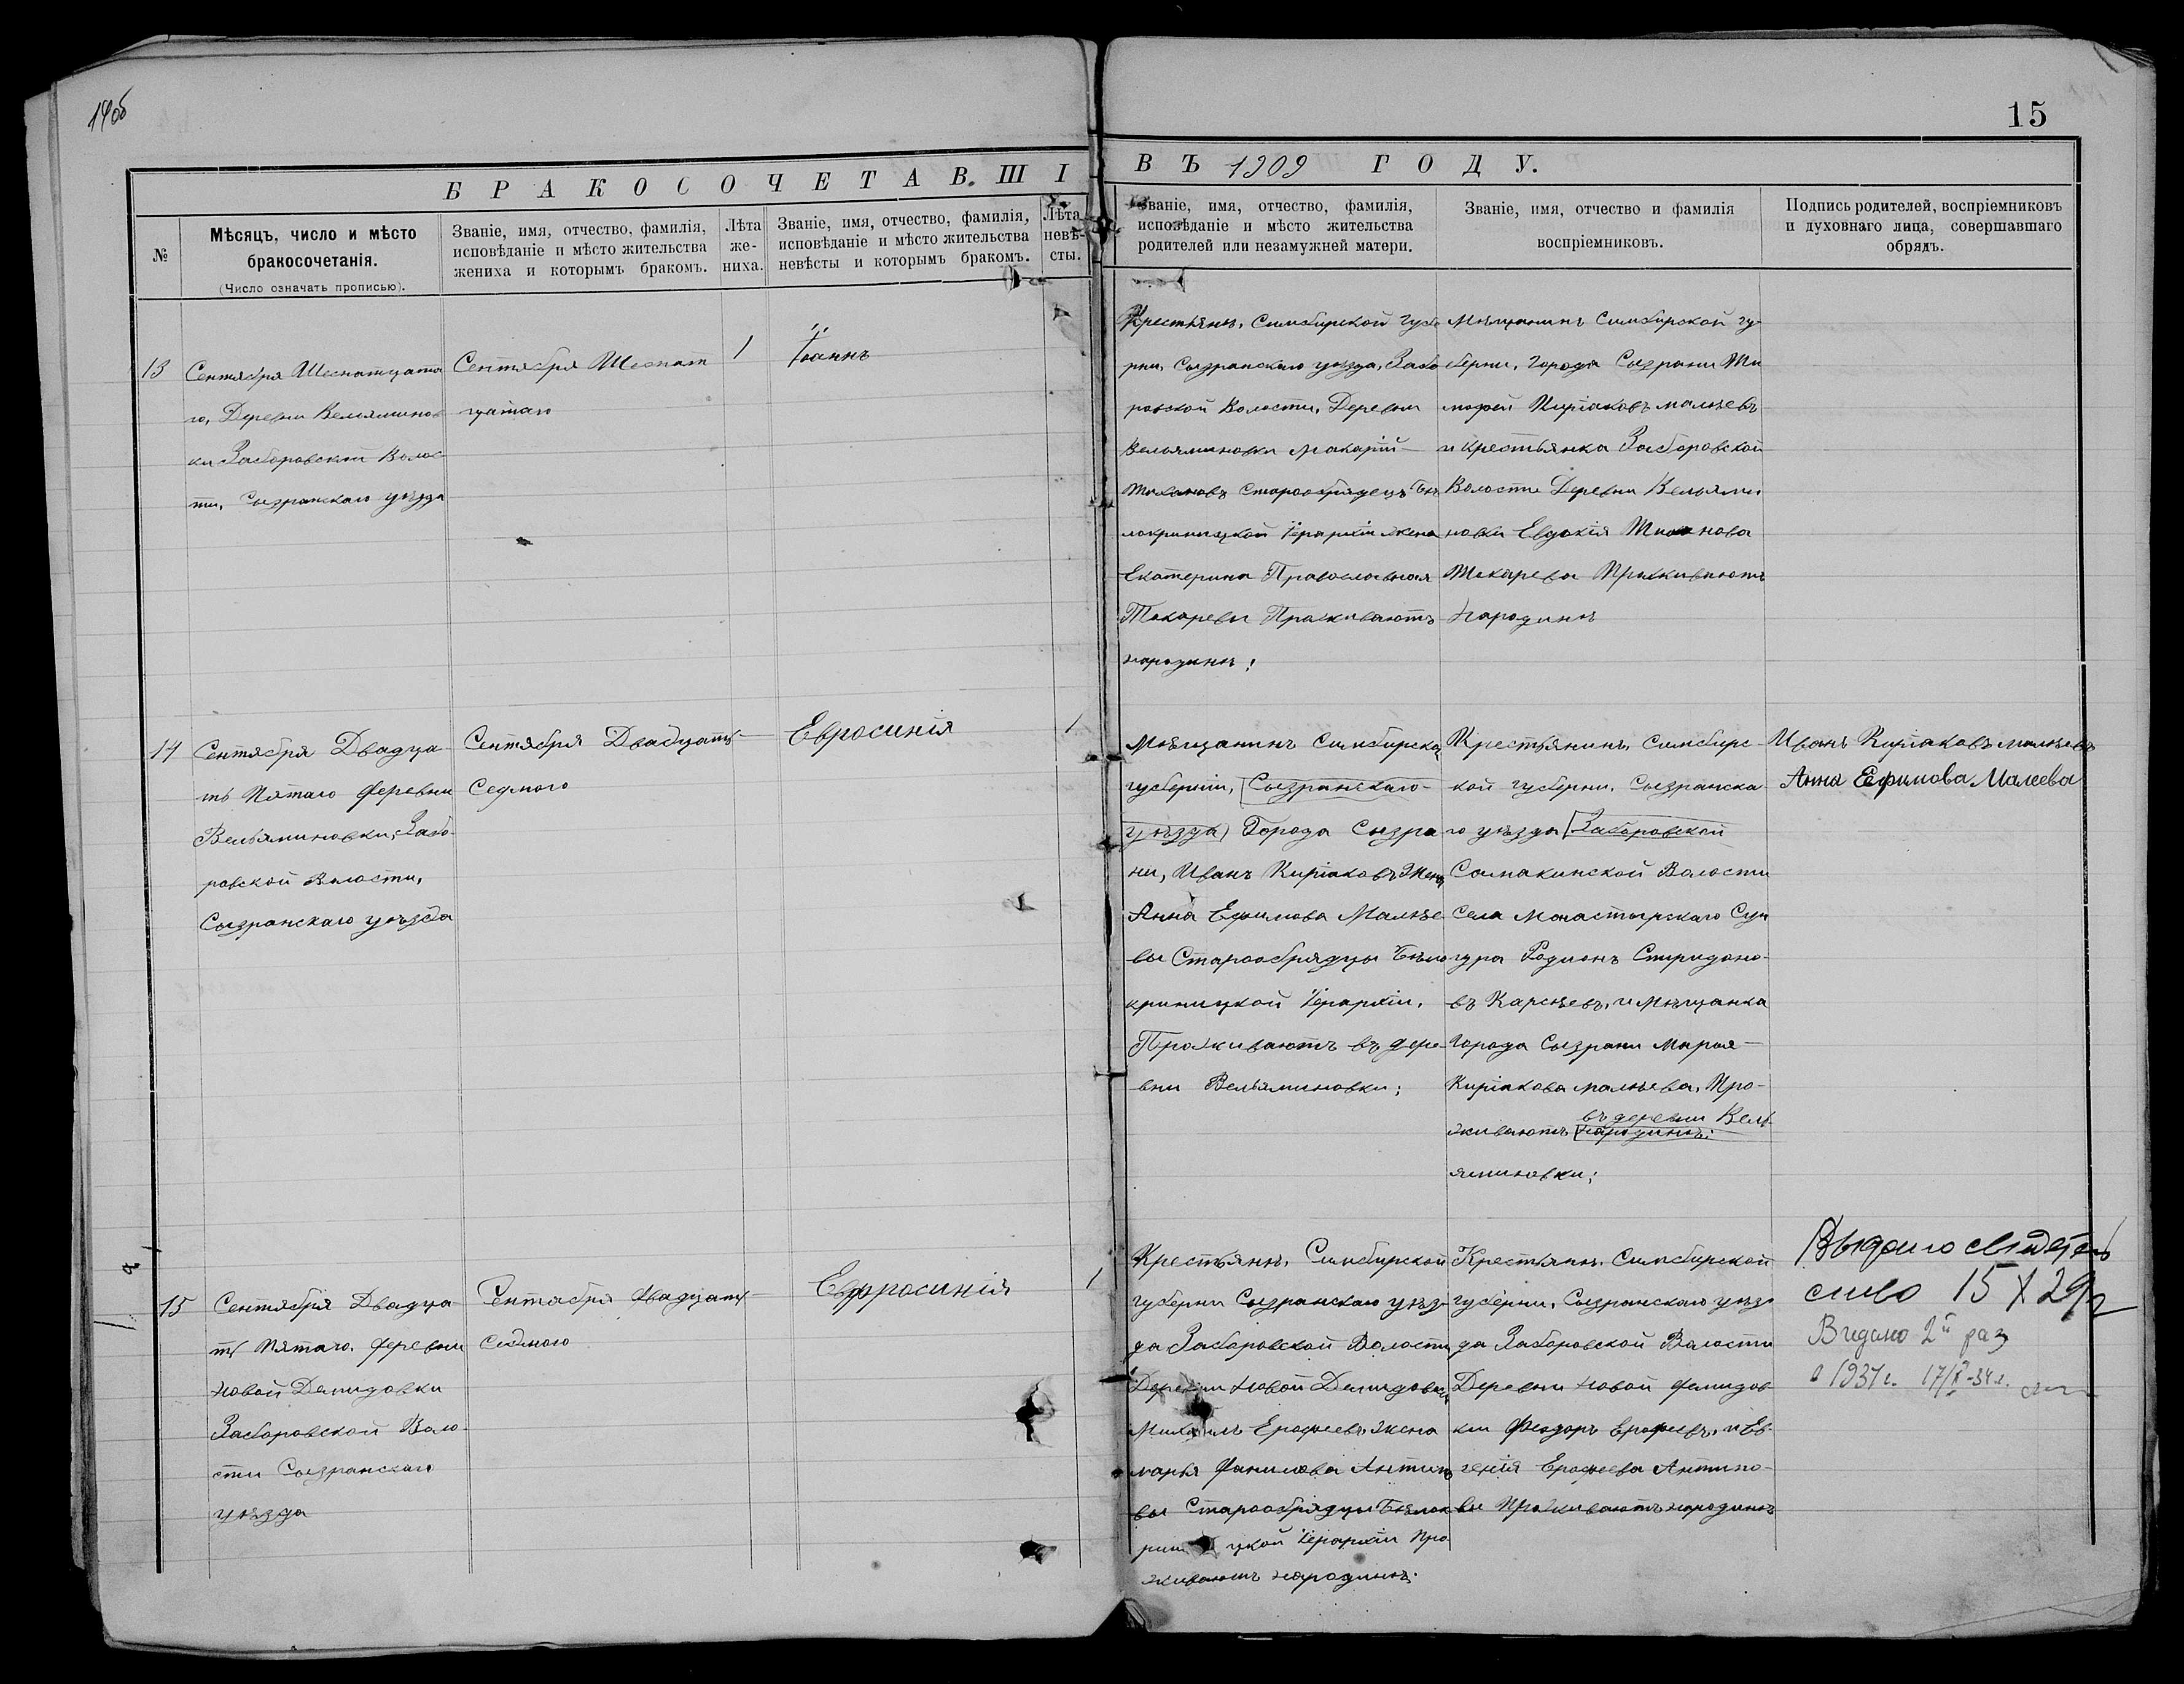 14об
15
БРАКОСОЧЕТАВШІ
ВЪ 1909 ГОДУ.
№
Мѣсяцъ, число и мѣсто
бракосочетанія.
(Число означать прописью).
Званіе, имя, отчество, фамилія,
исповѣданіе и мѣсто жительства
жениха и которымъ бракомъ.
Лѣта
же-
ниха.
Званіе, имя, отчество, фамилія,
исповѣданіе и мѣсто жительства
невѣсты и которымъ бракомъ.
Лѣта
невѣ-
сты.
Званіе, имя, отчество, фамилія,
исповѣданіе и мѣсто жительства
родителей или незамужней матери.
Званіе, имя, отчество и фамилія
воспріемниковъ.
Подпись родителей, воспріемниковъ
и духовнаго лица, совершавшаго
обрядъ.
13
Сентября Шеснатцата
го, Деревни Вельяминов
ки Заборовской Волос
ти, Сызранскаго уѣзда
Сентября Шеснат
цатаго
1
Іоаннъ
Крестьянъ, Симбирской Губе
рни, Сызранскаго уѣзда, Забо
ровской Волости, Деревни
Вельяминовки Макарій
Тихановъ Старообрядецъ Бѣ
локриницкой Іерархіи жена
Екатерина Православная
Токаревы Проживаютъ
народинѣ;
Мѣщанинъ Симбирской гу
берни, Города Сызрани Ти
мофей Киріаковъ Малѣевъ
и Крестьянка Заборовской
Волости Деревни Вельями
новки Евдокія Тихонова
Токарева Проживаютъ
народинѣ
14
Сентября Двадца
ть Пятаго Деревни
Вельяминовки, Забо-
ровской Волости,
Сызранскаго уѣзда
Сентября Двадцать
Седмого
Евросинія
1
Мѣщанинъ Симбирской
губерніи, Сызранскаго
уѣзда Города Сызра
ни, Иванъ Киріаковъ Жена
Анна Ефимова Малѣе
вы Старообрядцы Бѣло
криницкой Іерархіи.
Проживаютъ въ дере-
вни Вельяминовки;
Крестьянинъ Симбирс
кой губерни, Сызранска
го уѣзда Заборовской
Самакинской Волости
Села Монастырскаго Сун
гура Родионъ Спиридоно-
въ Карсѣевъ, и Мѣщанка
Города Сызрани Марья
Киріакова Малѣева, Про-
въ деревни Вель
живаютъ народинѣ:
яминовки;
Иванъ Киріаковъ малѣевъ
Анна Ефимова Малеева
15
Сентября Двадца
ть Пятаго, деревни
новой Демидовки
Заборовской Воло-
сти Сызранскаго
уѣзда
Сентября Двадцать
Седмого
Евфросинія
1
Крестьянъ, Симбирской
Губерни Сызранскаго уѣз-
да Заборовской Волости
Деревни Новой Демидовки
Михаилъ Ерофеевъ Жена
марья Антипо
вы Старообрядцы Бѣлок
риницкой Іерархіи Про
живаютъ народинѣ:
Крестьянъ, Симбирской
губерни, Сызранскаго уѣз
да Заборовской Волости
Деревни Новой Демидов
ки Феодоръ Ерофеевъ, и Ев-
генія Ерофеева Антипо-
вы Проживаютъ народинѣ
Выдано свидетель
ство 15 X 29
Видано 2й раз
в 1931г. 17/X-34г.